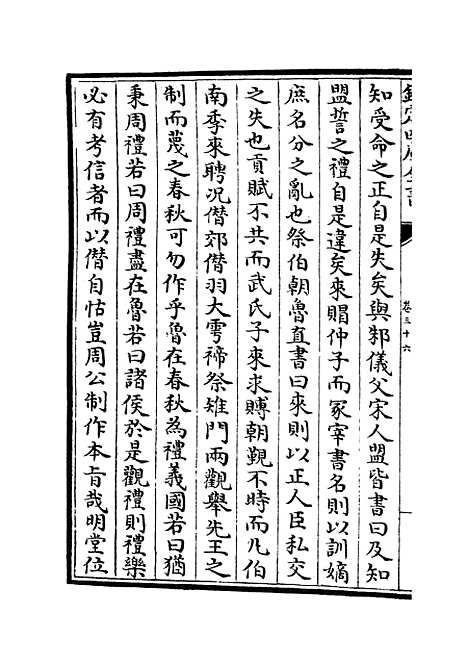 欽定四庫全書
卷三十六
知受命之正自是失矣與邾儀父宋人盟皆書曰及知
盟誓之禮自是違矣來賵仲子而冢宰書名則以訓嫡
庶名分之亂也祭伯朝魯直書曰來則以正人臣私交
之失也貢賦不共而武氏子來求賻朝覲不時而凡伯
南季來聘况僭郊僭羽大雩禘祭雉門兩觀舉先王之
制而蔑之春秋可勿作乎魯在春秋為禮義國若曰猶
秉周禮若曰周禮盡在魯若曰諸侯於是觀禮則禮樂
必有考信者而以僭自怙豈周公制作本旨哉明堂位